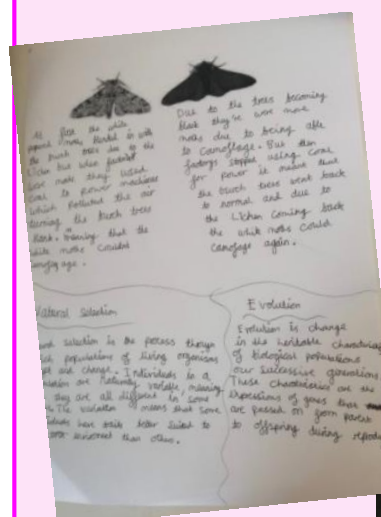 At first the white
pepperd moths blented in with
the burch trees due to the
Lichen but when factories
were made they used
coal to power machines
which polluted the air
turning the burch trees
black. Meaning that the
white moths couldnt
camoflage.
Due to the trees becoming
black they're were more
moths due to being able
to camoflage. But then
factorys stopped using coal
for power is meant that
the burch trees went back
to normal and due to
the Lichen coming back
the white moths could
camoflage again.
Natural Selection
selection is the process though
populations of living organisms
and change. Individuals in a
are Naturally variable, meaning
they are all different in some
The variation means that some
have traits better suited to
environment than others.
Evolution
Evolution is change
in the heritable
of biological populations
our successive generations
These charactaristics are the
expressions of genes that
are passed on from parent
to offspring during